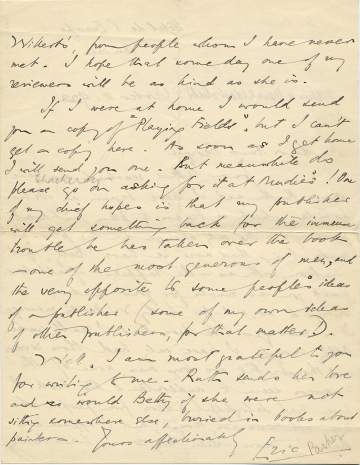 from people whom I have never
met. I hope that some day one of my
reviewers will be as kind as she is.
If I were at home I would send
you a copy of "Playing Fields", but I can't
get a copy here. As soon as I get home
I will send you one. But meanwhile do
please go on asking for it at Mudie's! One
of my chief hopes is that my publisher
will get something back for the immense
trouble he has taken over the book
– one of the most generous of men, and
the very opposite to some people's ideas
of a publisher (some of my own ideas
of other publishers, for that matter).
I am most grateful to you
for writing to me. Ruth sends her love
and so would Betty if she were not
sitting somewhere else, buried in books about
painters. Yours affectionately
Eric Parker